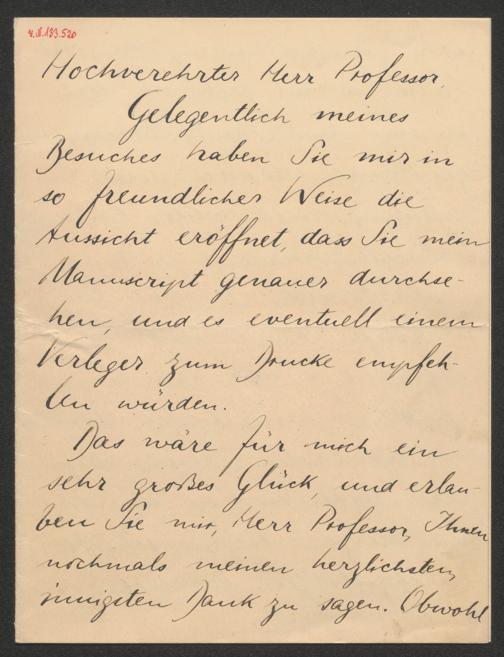 4.8.183.520
Hochverehrter Herr Professor,
Gelegentlich meines
Besuches haben Sie mir in
so freundlicher Weise die
Aussicht eröffnet, dass Sie mein
Manuscript genauer durchse-
hen, und es eventuell einem
Verleger zum Drucke empfeh-
len würden.
Das wäre für mich ein
sehr großes Glück, und erlau-
ben Sie mir, Herr Professor, Ihnen
nochmals meinen herzlichsten,
innigsten Dank zu sagen. Obwohl